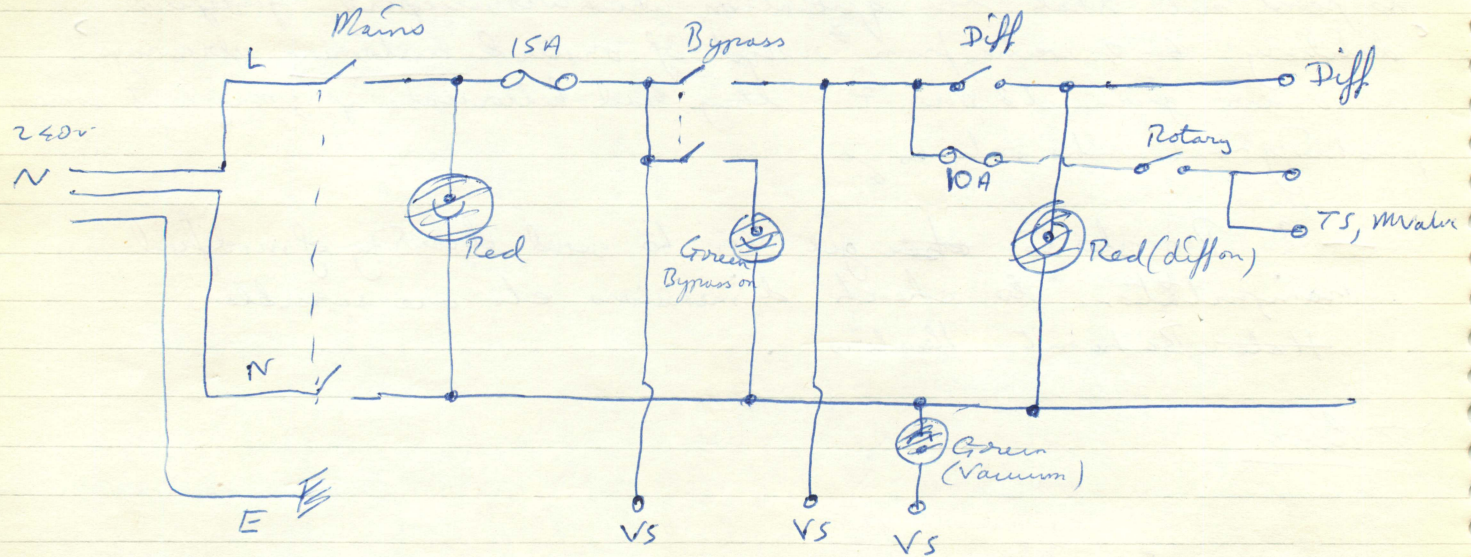 Mains
15A
Bypass
Diff
L
Diff
240v
N
Rotary
10A
TS, MValve
Red
Green
Bypass on
Red (diff on)
N
Green
(Vacuum)
E
VS
VS
VS